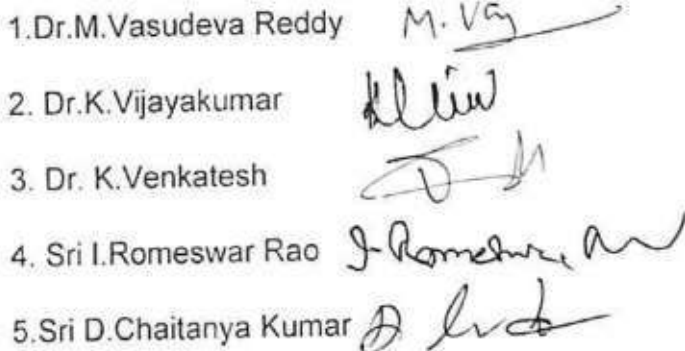 1.Dr.M.Vasudeva Reddy M. Vas
2. Dr.K.Vijayakumar
3. Dr. K.Venkatesh
4. Sri I.Romeswar Rao I. Romeswar Rao
5.Sri D.Chaitanya Kumar D